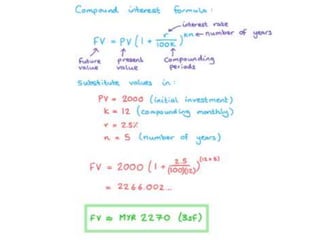 Compound interest formula:
interest rate
FV = PV(1 + r/100k)^kn ← number of years
future value
present value
compounding periods
Substitute values in:
PV = 2000 (initial investment)
k = 12 (compounding monthly)
r = 2.5%
n = 5 (number of years)
FV = 2000(1 + 2.5/(100)(12))^(12×5)
= 2266.002...
FV ≈ MYR 2270 (3SF)